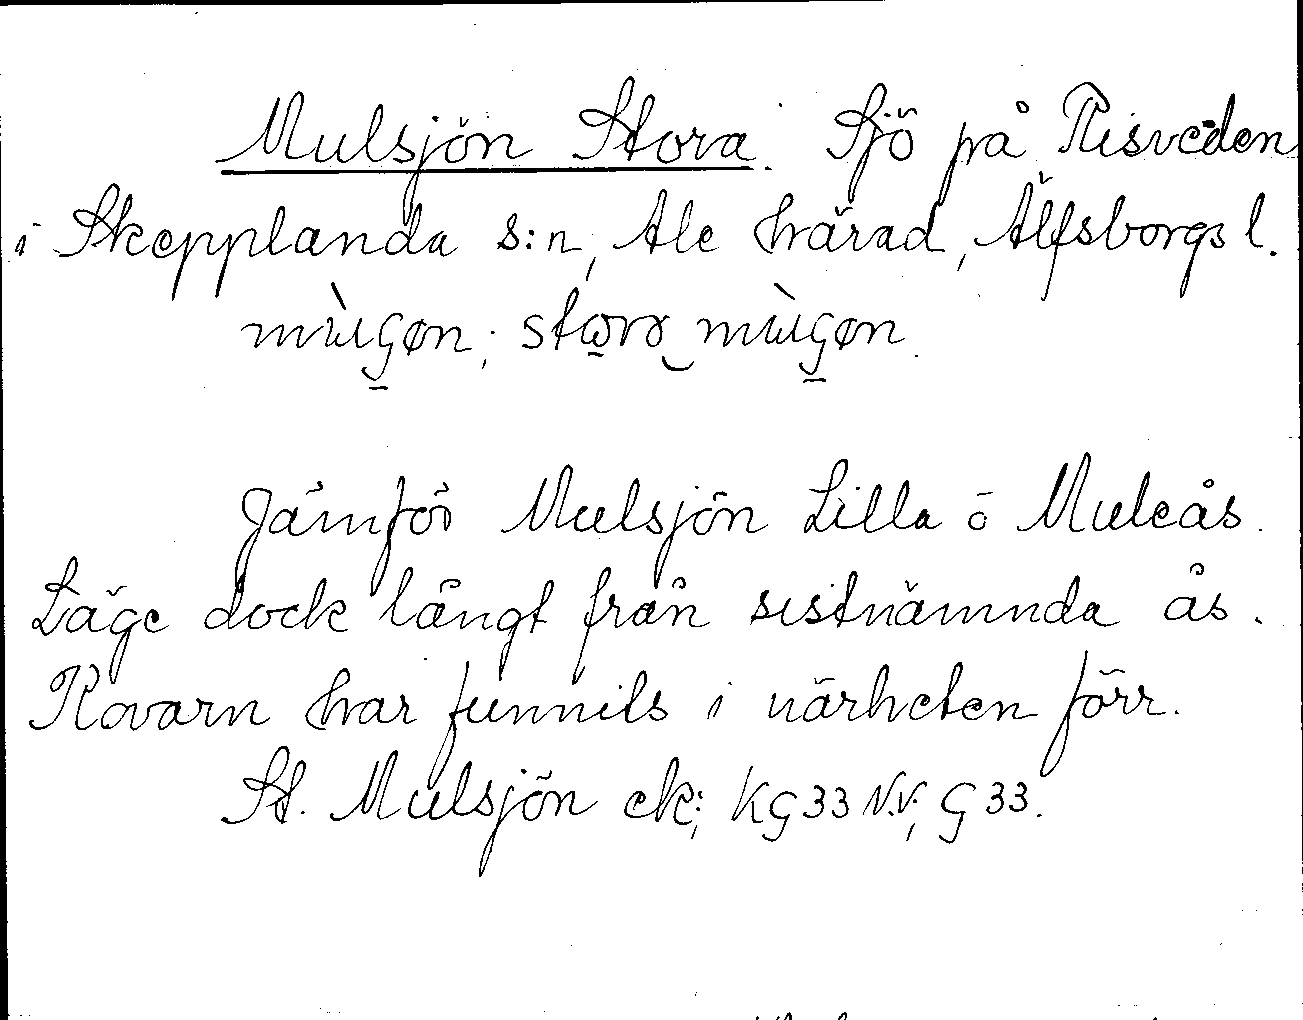 Mulsjön Stora. Sjö på Risveden
i Skepplanda s:n, Ale härad, Älfsborgs l.
mùsøn; stora mùsøn.
Jämför Mulsjön Lilla o Muleås.
Läge dock långt från sistnämnda ås.
Kvarn har funnits i närheten förr.
St. Mulsjön ek; KG 33 N.V; G 33.